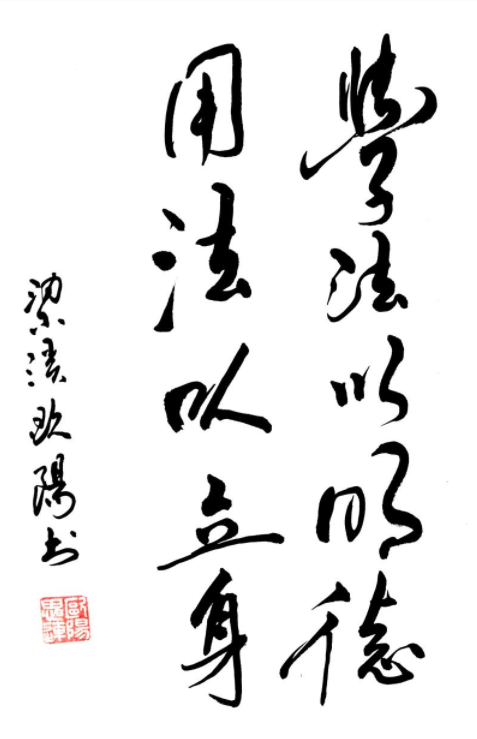 學法以明德
用法以立身
梁溪欧陽书
歐陽